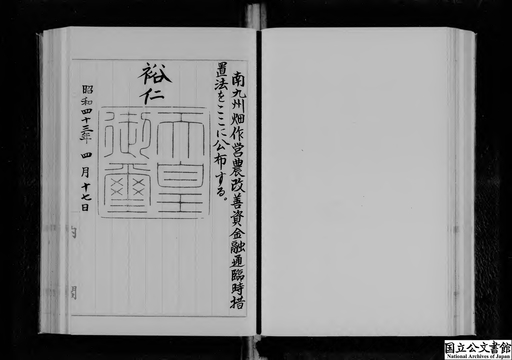 南九州畑作営農改善資金融通臨時措
置法をここに公布する。
裕仁
天皇
御璽
昭和四十三年四月十七日
内閣
国立公文書館
National Archives of Japan